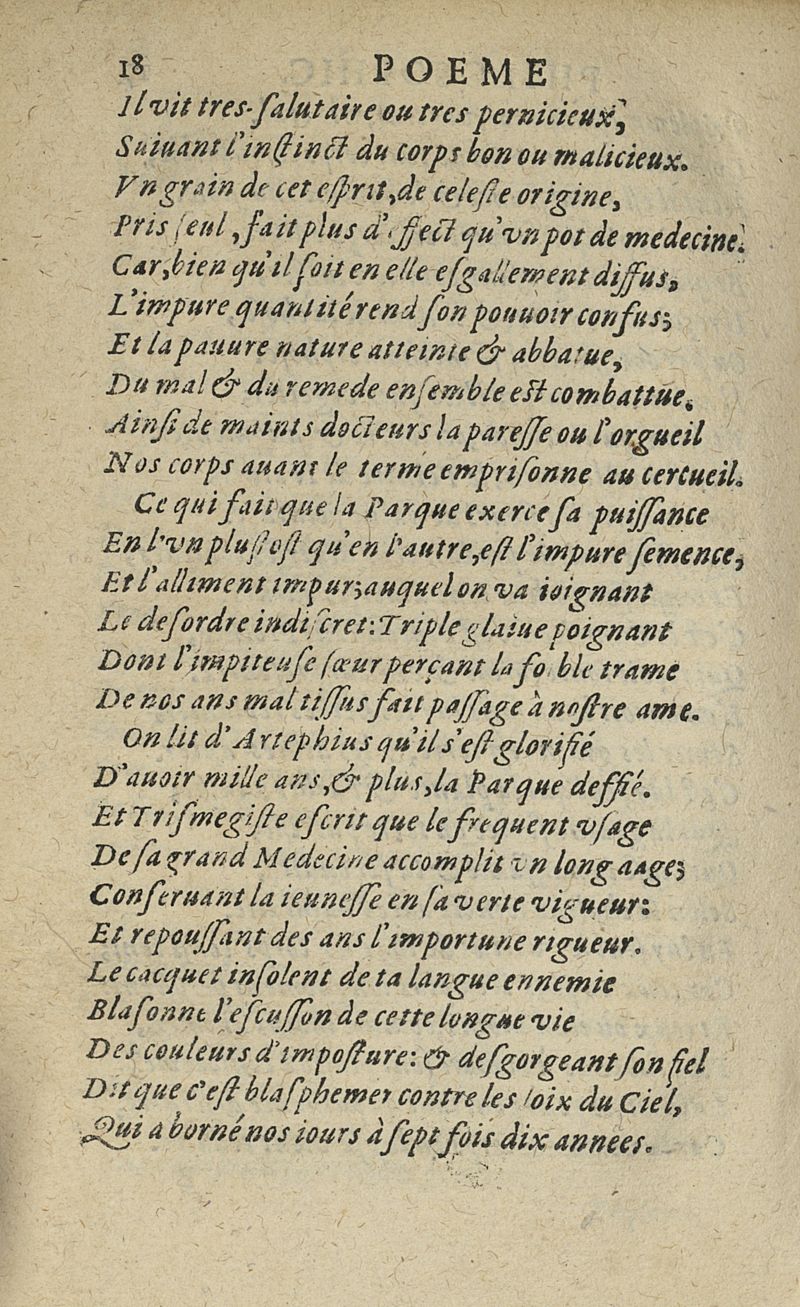 18 POEME
Il vit tres-ſalutaire ou tres pernicieux,
Suiuant l'inſtinct du corps bon ou malicieux.
Vn grain de cet eſprit, de celeſte origine,
Pris ſeul, fait plus d'effect qu'vn pot de medecine.
Car, bien qu'il ſoit en elle eſgallement diffus,
L'impure quantité rend ſon pouuoir confus;
Et la pauure nature atteinte & abbatue,
Du mal & du remede enſemble eſt combattue.
Ainſi de maints docteurs la pareſſe ou l'orgueil
Nos corps auant le terme empriſonne au cercueil.
Ce qui fait que la Parque exerce ſa puiſſance
En l'vn pluſtoſt qu'en l'autre, eſt l'impure ſemence,
Et l'alliment impur; auquel on va ioignant
Le deſordre indiſcret: Triple glaiue poignant
Dont l'impiteuſe ſœur perçant la foible trame
De nos ans mal tiſſus fait paſſage à noſtre ame.
On lit d'Artephius qu'il s'eſt glorifié
D'auoir mille ans, & plus, la Parque deffié.
Et Triſmegiſte eſcrit que le frequent vſage
De ſa grand Medecine accomplit vn long aage;
Conſeruant la ieuneſſe en ſa verte vigueur:
Et repouſſant des ans l'importune rigueur.
Le cacquet inſolent de ta langue ennemie
Blaſonne l'eſcuſſon de cette longue vie
Des couleurs d'impoſture: & deſgorgeant ſon fiel
Dit que c'eſt blaſphemer contre les loix du Ciel,
Qui a borné nos iours à ſept fois dix annees.